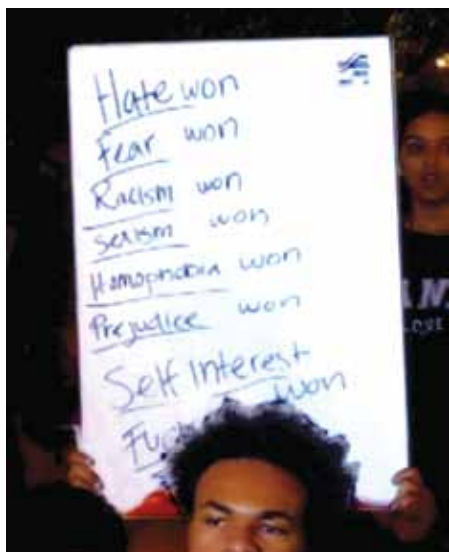 Hate won
Fear won
Racism won
sexism won
Homophobia won
Prejudice won
Self Interest
won